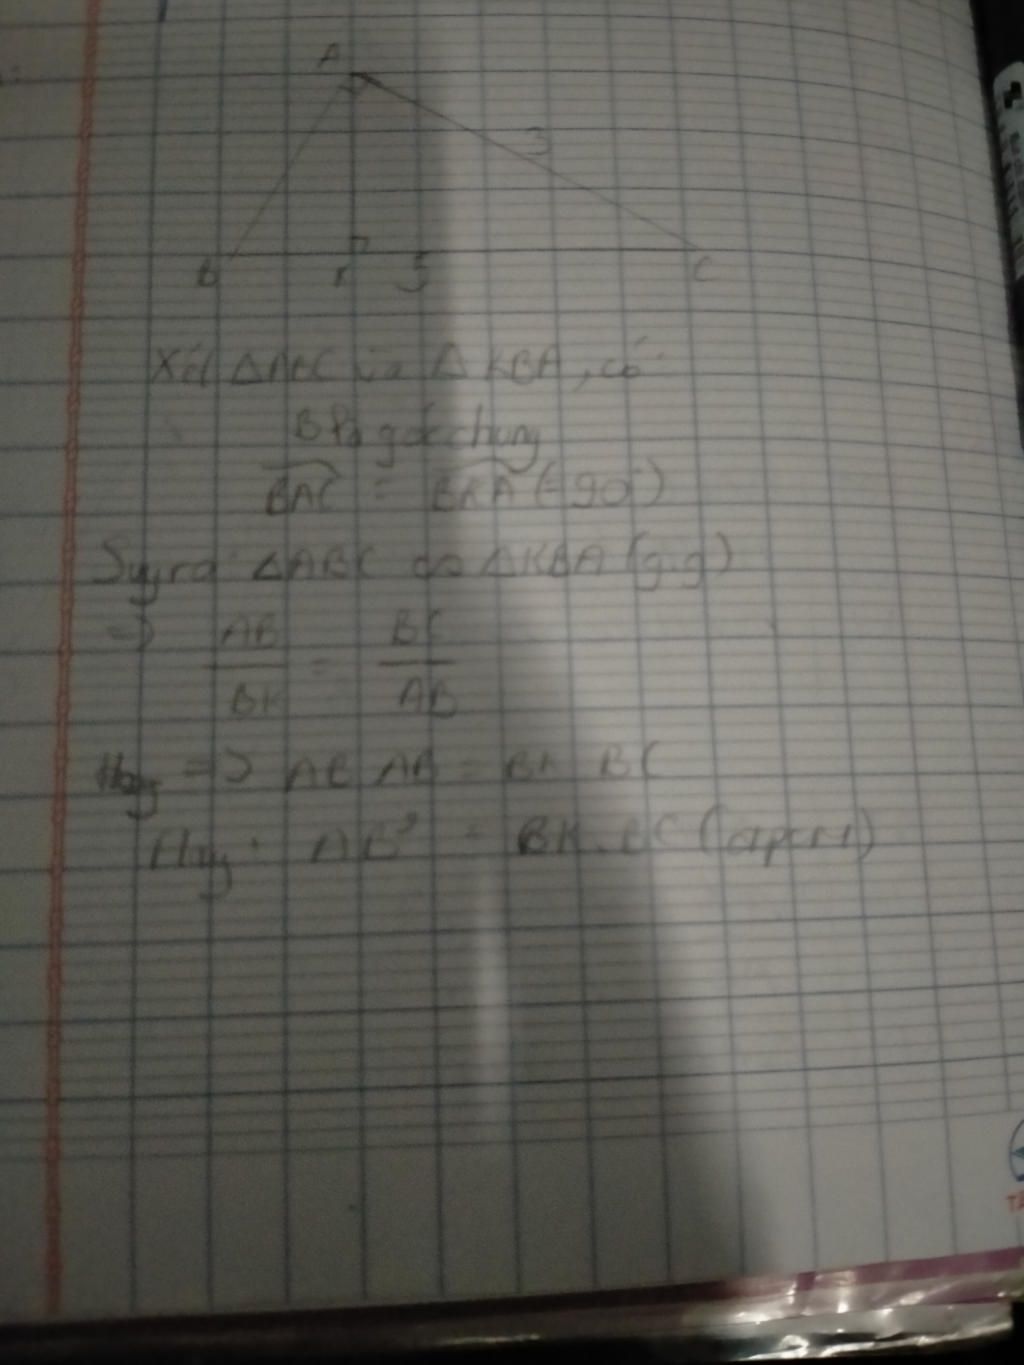 A
3
B K 5 C
Xét ΔABC và ΔKBA, có:
B là góc chung
BAC = BKA (=90°)
Suy ra: ΔABC ∽ ΔKBA (g.g)
=> AB/BK = BC/AB
=> AB AB = BK BC
Hay: AB² = BK.BC (đpcm)